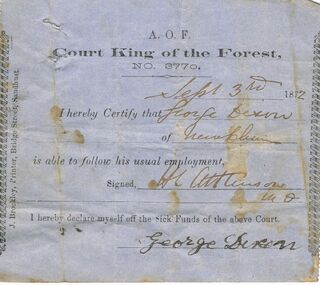 A. O. F.
Court King of the Forest,
NO. 3770.
Sept 3rd 1872
I hereby Certify that George Dixon
of
is able to follow his usual employment,
Signed, H L Atkinson
M D
I hereby declare myself off the Sick Funds of the above Court.
George Dixon
J. Burkley, Printer, Bridge Street, Sandhurst.